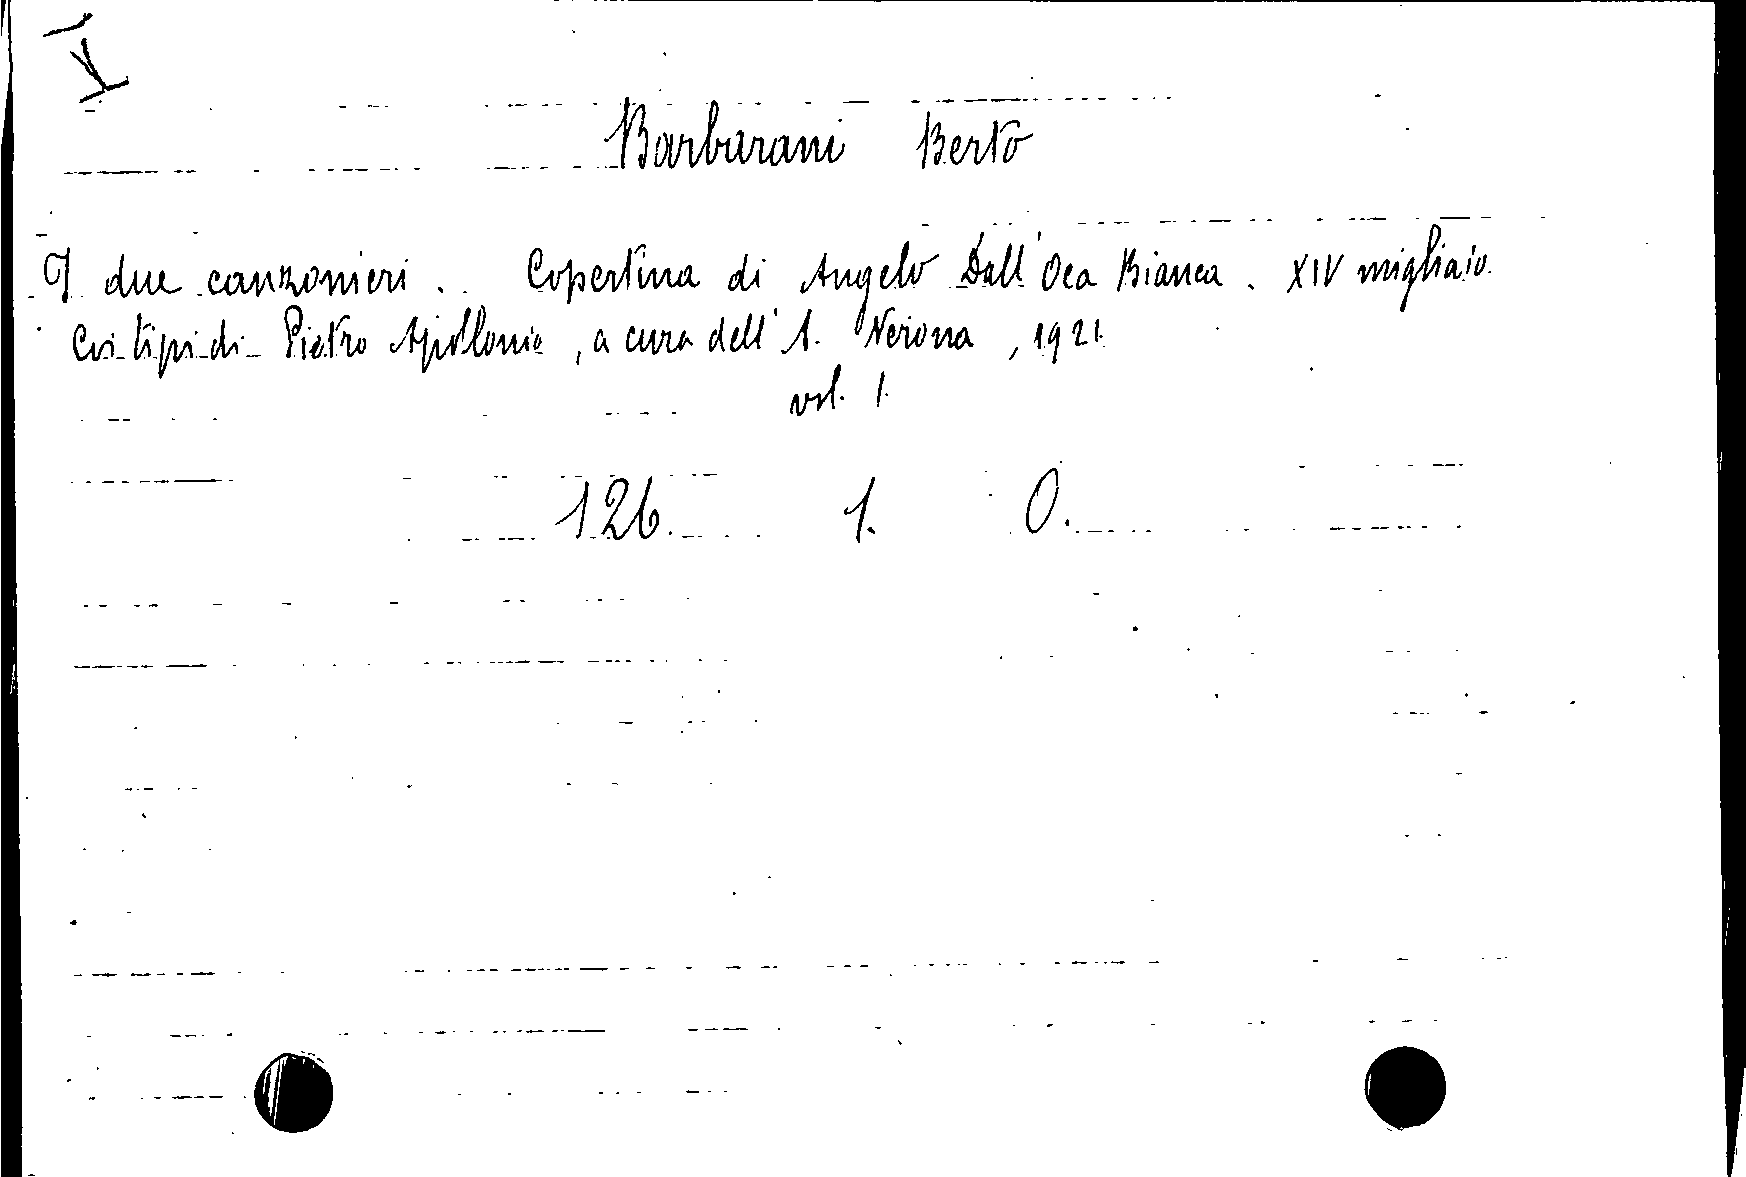 Barbarani Berto
I due canzonieri. Copertina di Angelo Dall'Oca Bianca. XIV migliaio.
Coi tipi di Pietro Apollonio, a cura dell'A. Verona, 1921.
vol. 1.
126. 1. O.